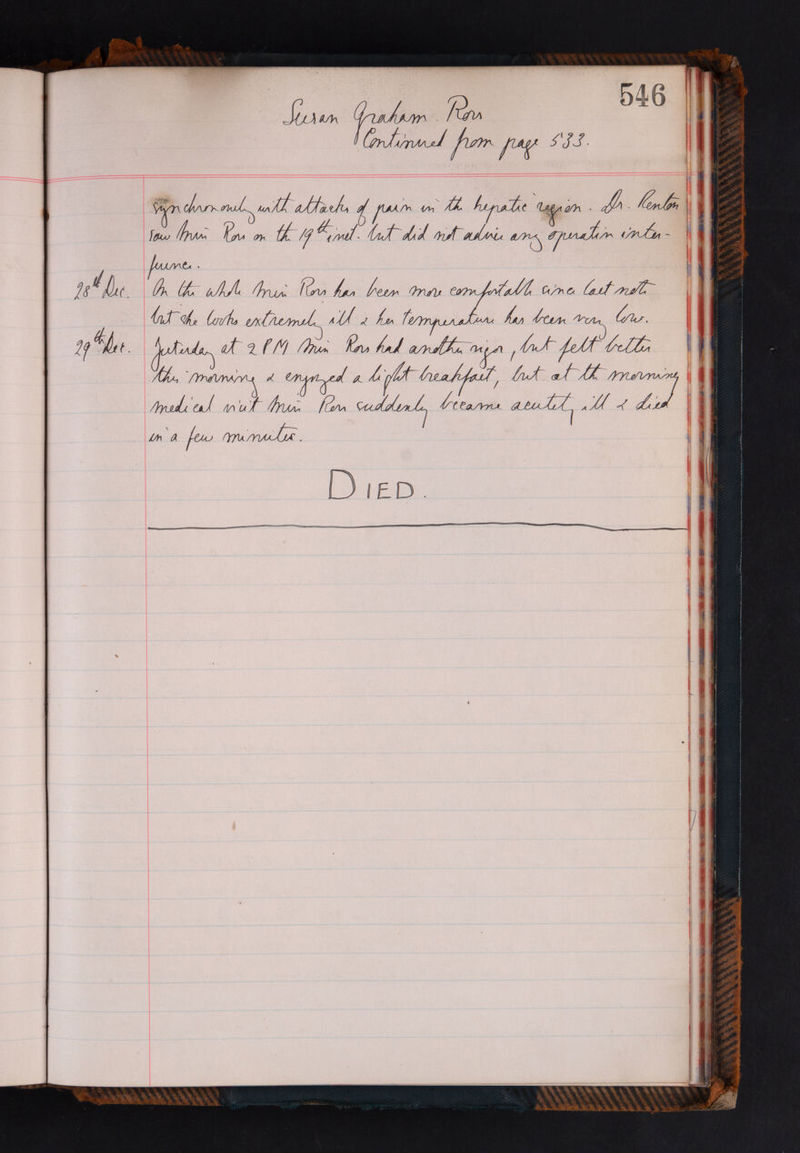 546
Susan Graham Ross
Continued from page 533.
synchronously with attacks of pain in the hepatic region. Dr. Renton
saw Miss Ross on the 19th inst. but did not advise any operation inter-
ference.
28th Dec. On the whole Miss Ross has been more comfortable since last note
but she looks extremely ill & her temperature has been very low.
29th Dec. Yesterday at 2 PM Miss Ross had another rigor, but felt better
this morning & enjoyed a light breakfast, but at the morning
medical visit Miss Ross suddenly became acutely ill & died
in a few minutes.
DIED.